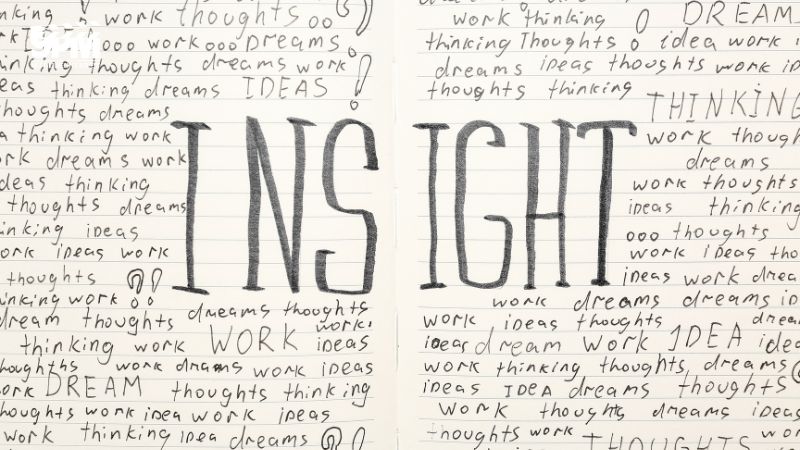 work thoughts oo
ooo work ooo Dreams
thinking thoughts dreams work
thinking dreams IDEAS !
thoughts dreams
a thinking work
dreams work
ideas thinking
thoughts dreams
ideas
work ideas work
thoughts ?!
work
dream thoughts dreams thoughts
work!
thinking work WORK ideas
work dreams work ideas
work DREAM thoughts thinking
thoughts work idea work ideas
work thinking idea dreams ?!
INSIGHT
work thinking DREAMS
thinking Thoughts o idea work
dreams ideas thoughts work
thoughts thinking
THINKING
work
dreams
work thoughts
ideas thinking
ooo thoughts
work ideas
ideas work
work dreams dreams
work ideas thoughts
ideas dream work IDEA
work thinking thoughts dreams
ideas IDEA dreams thoughts
work thoughts dreams ideas
thoughts work THOUGHTS